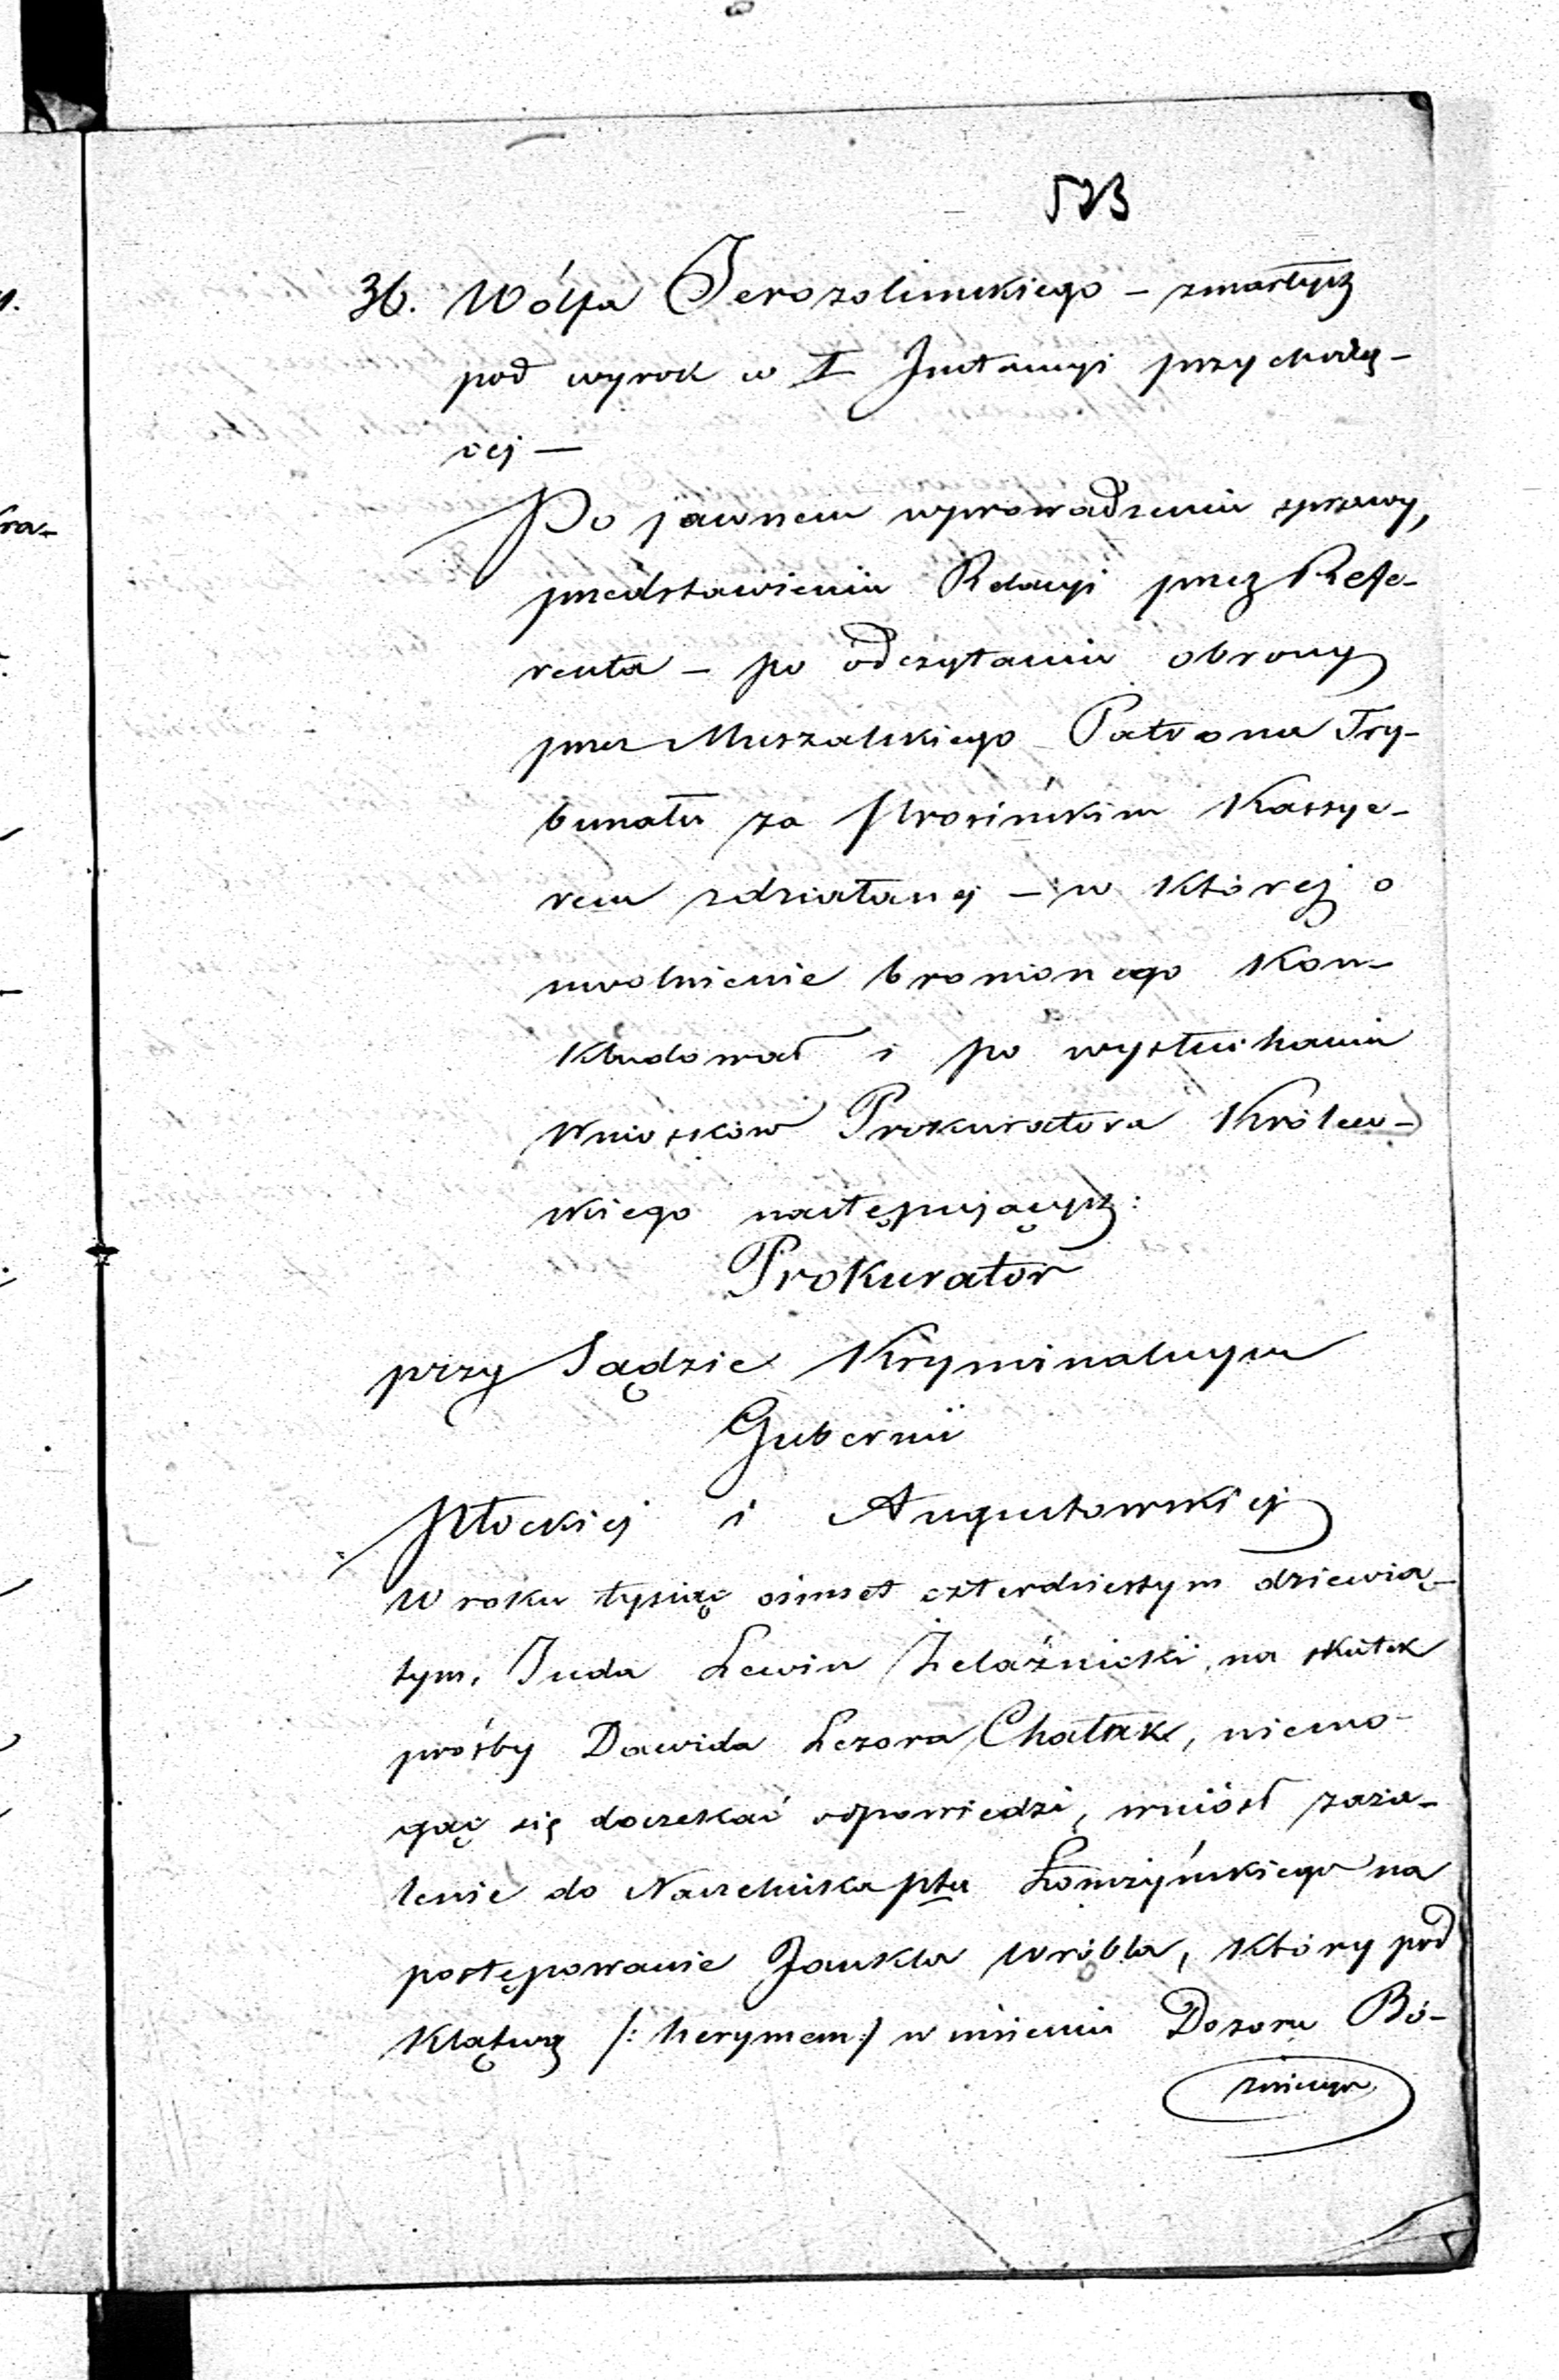 573
36. Wólfa Jerozolimskiego – zmarłych
pod wyrok w I Instancyi przychodzą-
cej —
Po jawnem wyprowadzeniu sprawy,
przedstawieniu Relacyi przez Refe-
renta – po odczytaniu obrony
przez Muszalskiego Patrona Try-
bunału za Krosińskim Kassye-
rem zdziałanej – w której o
uwolnienie bronionego kon-
kludował i po wysłuchaniu
Wniosków Prokuratora Królew-
skiego następujących:
Prokurator
przy Sądzie Kryminalnym
Gubernii
Płockiej i Augustowskiej
W roku tysiąc ośmset czterdziestym dziewią-
tym, Juda Lewin Żelaźnicki, na skutek
prośby Dawida Lezora Chatak, niemo-
gąc się doczekać odpowiedzi, wniósł zaża-
lenie do Naczelnika ptu Łomżyńskiego na
postępowanie Jankla Wróbla, który pod
klątwą /: herymem :/ w imieniu Dozoru Bó-
żnicznego